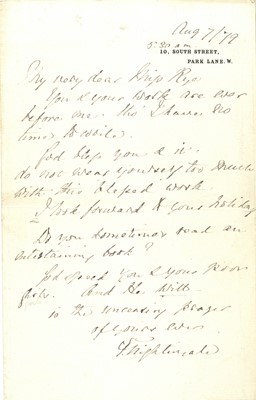 Aug 7/79
5.30 a.m
10, SOUTH STREET,
PARK LANE. W.
My very dear Miss Rye
You & your work are ever
before me: tho' I have no
time to write.
God bless you & it.
do not wear yourself too much
with this blessed work.
I look forward to your holiday
Do you sometimes read an
entertaining book?
God speed you & your poor
girls. And He will.
is the unceasing prayer
of yours ever
F Nightingale